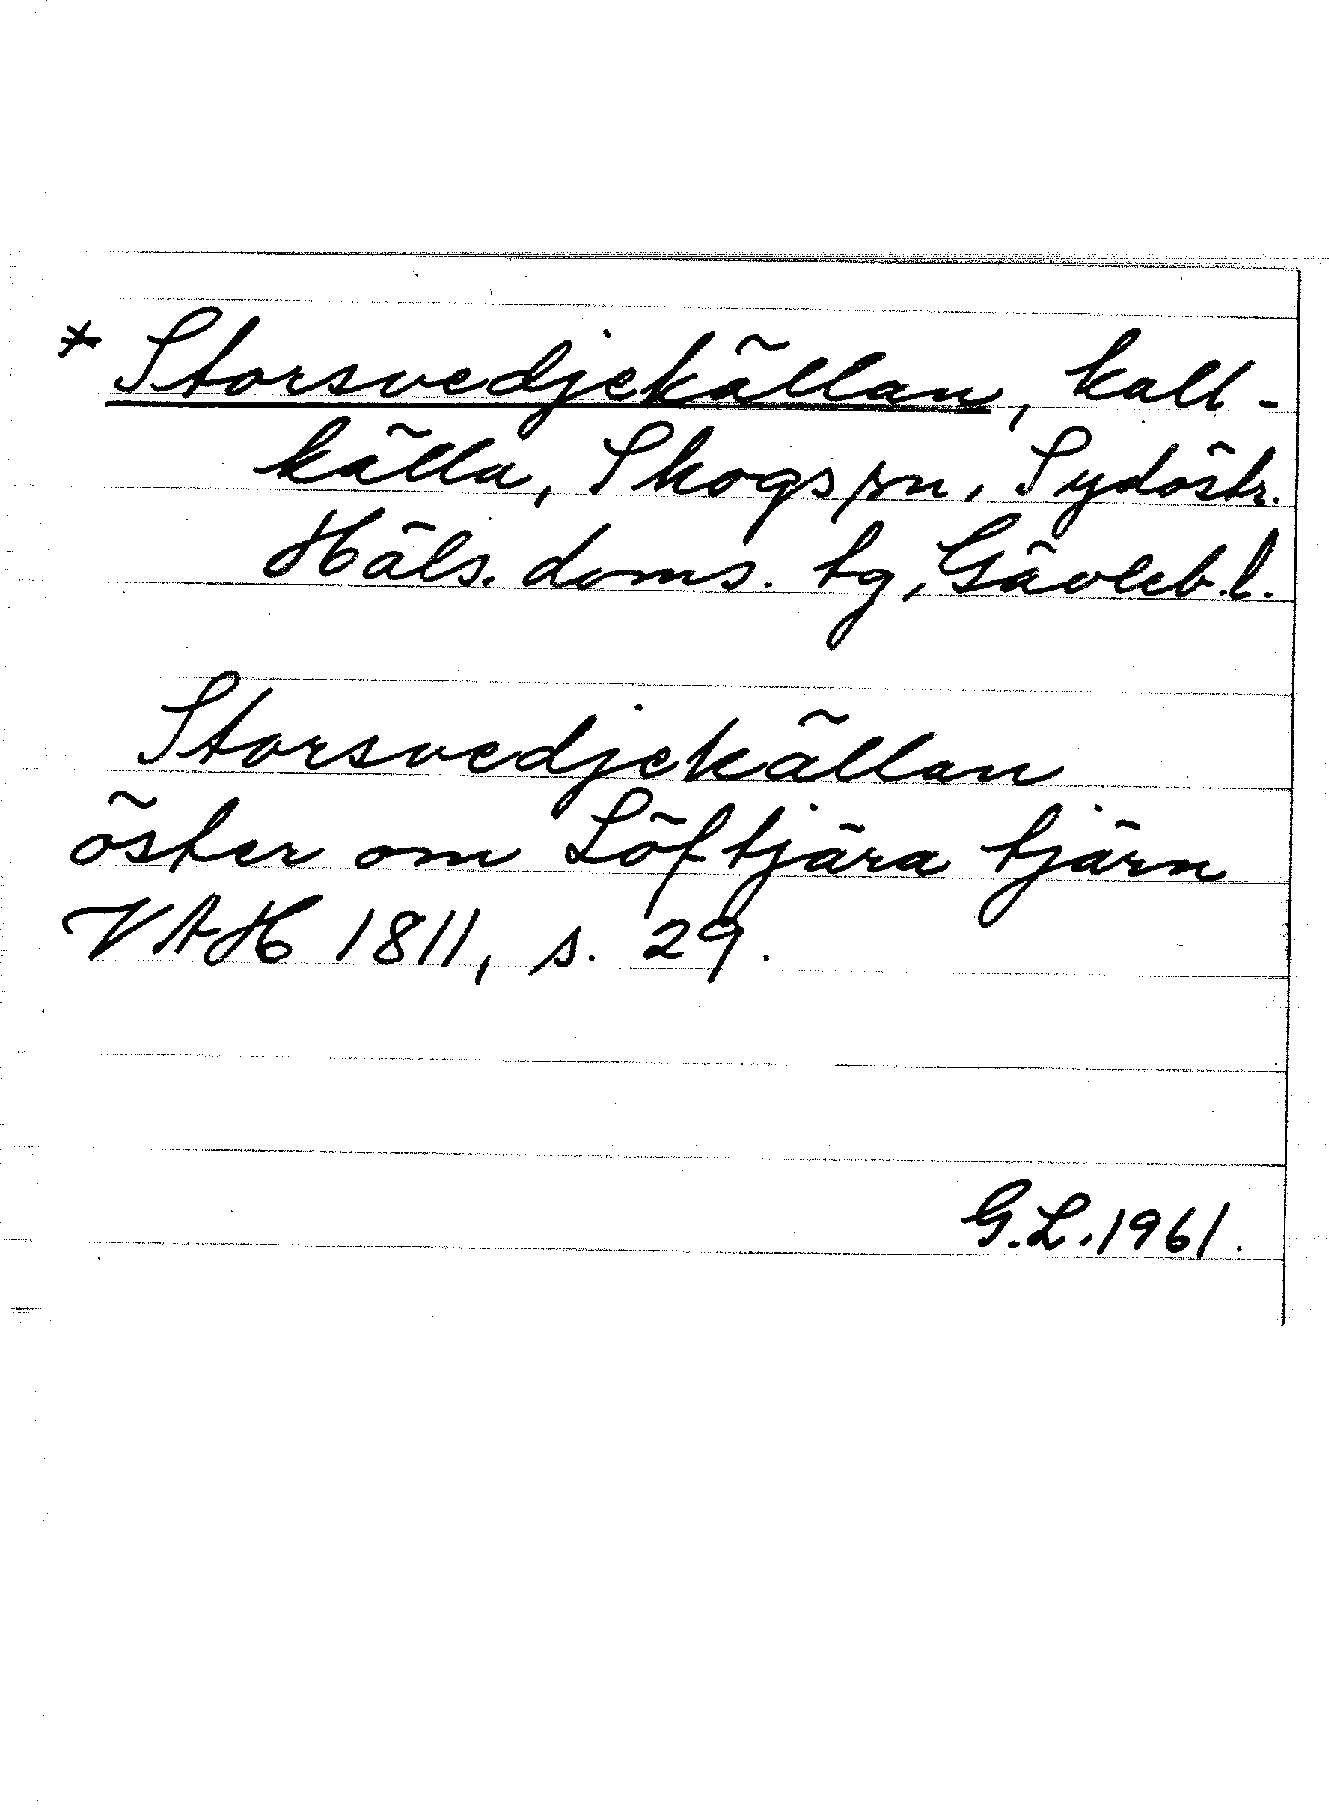 * Storsvedjekällan, kall-
källa, Skogs sn, Sydöstr.
Häls. doms. tg, Gävleb. l.
Storsvedjekällan
öster om Löftjära tjärn
VAH 1811, s. 29.
G. L. 1961.